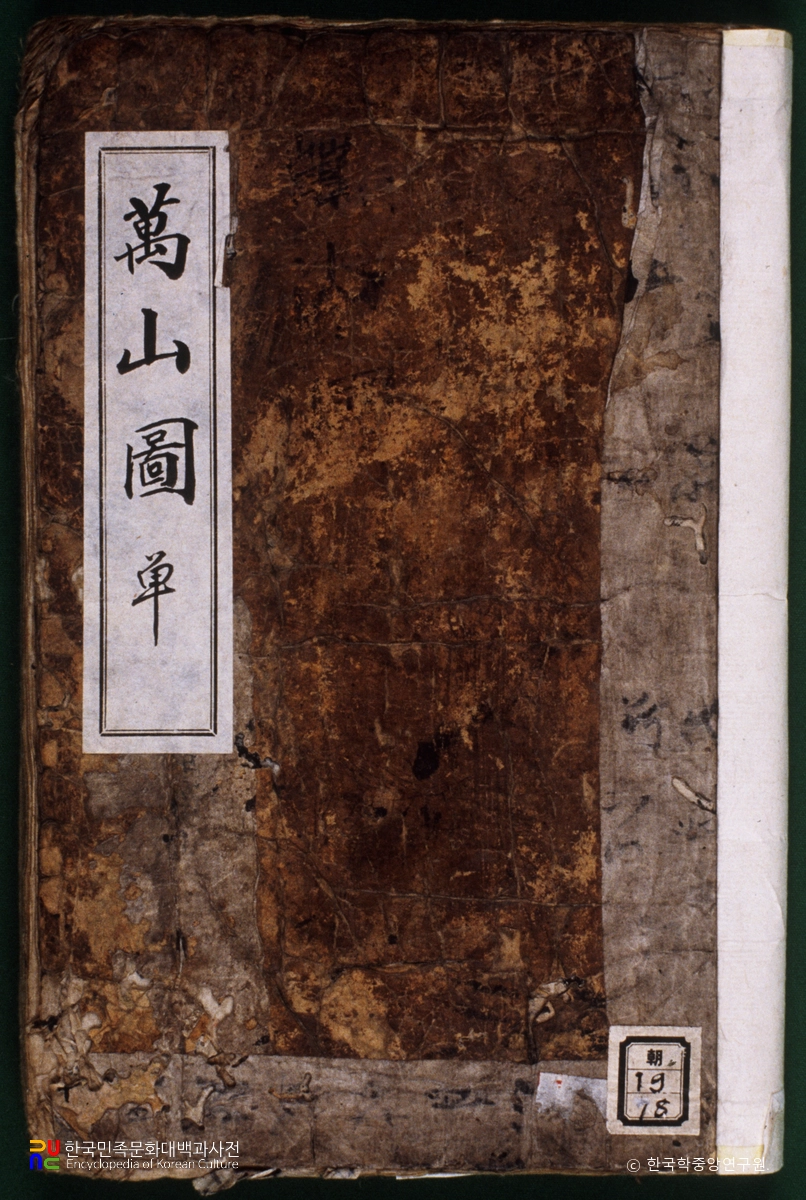 萬山圖 单
朝
19
18
한국민족문화대백과사전
Encyclopedia of Korean Culture
© 한국학중앙연구원